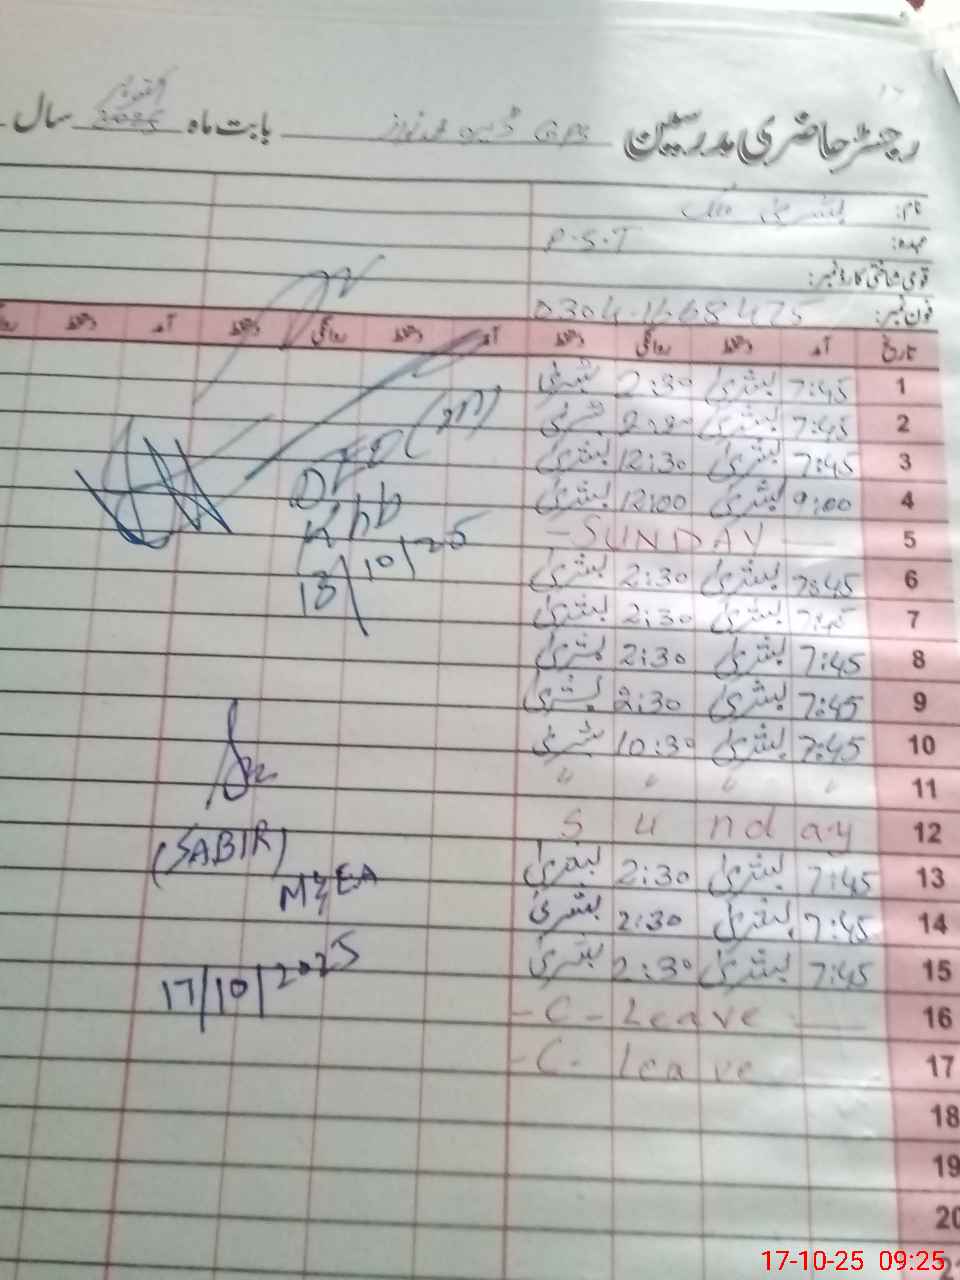 رجسٹر حاضری مدرسین GPS بابت ماہ اکتوبر 2025 سال
نام: بشریٰ
عہدہ: P.S.T
قومی شناختی کارڈ نمبر:
فون نمبر: 0304-1668475
تاریخ آمد دستخط روانگی دستخط آمد دستخط روانگی دستخط آمد دستخط
1 7:45 بشریٰ 2:30 بشریٰ
2 7:45 بشریٰ 2:30 بشریٰ
3 7:45 بشریٰ 12:30 بشریٰ
4 9:00 بشریٰ 12:00 بشریٰ
5 - SUNDAY -
6 7:45 بشریٰ 2:30 بشریٰ
7 7:45 بشریٰ 2:30 بشریٰ
8 7:45 بشریٰ 2:30 بشریٰ
9 7:45 بشریٰ 2:30 بشریٰ
10 7:45 بشریٰ 10:30 بشریٰ
11 " " " "
12 Sunday
13 7:45 بشریٰ 2:30 بشریٰ
14 7:45 بشریٰ 2:30 بشریٰ
15 7:45 بشریٰ 2:30 بشریٰ
16 - C - Leave -
17 - C - leave
18
19
20
13/10/25
(SABIR)
MEA
17/10/2025
17-10-25 09:25